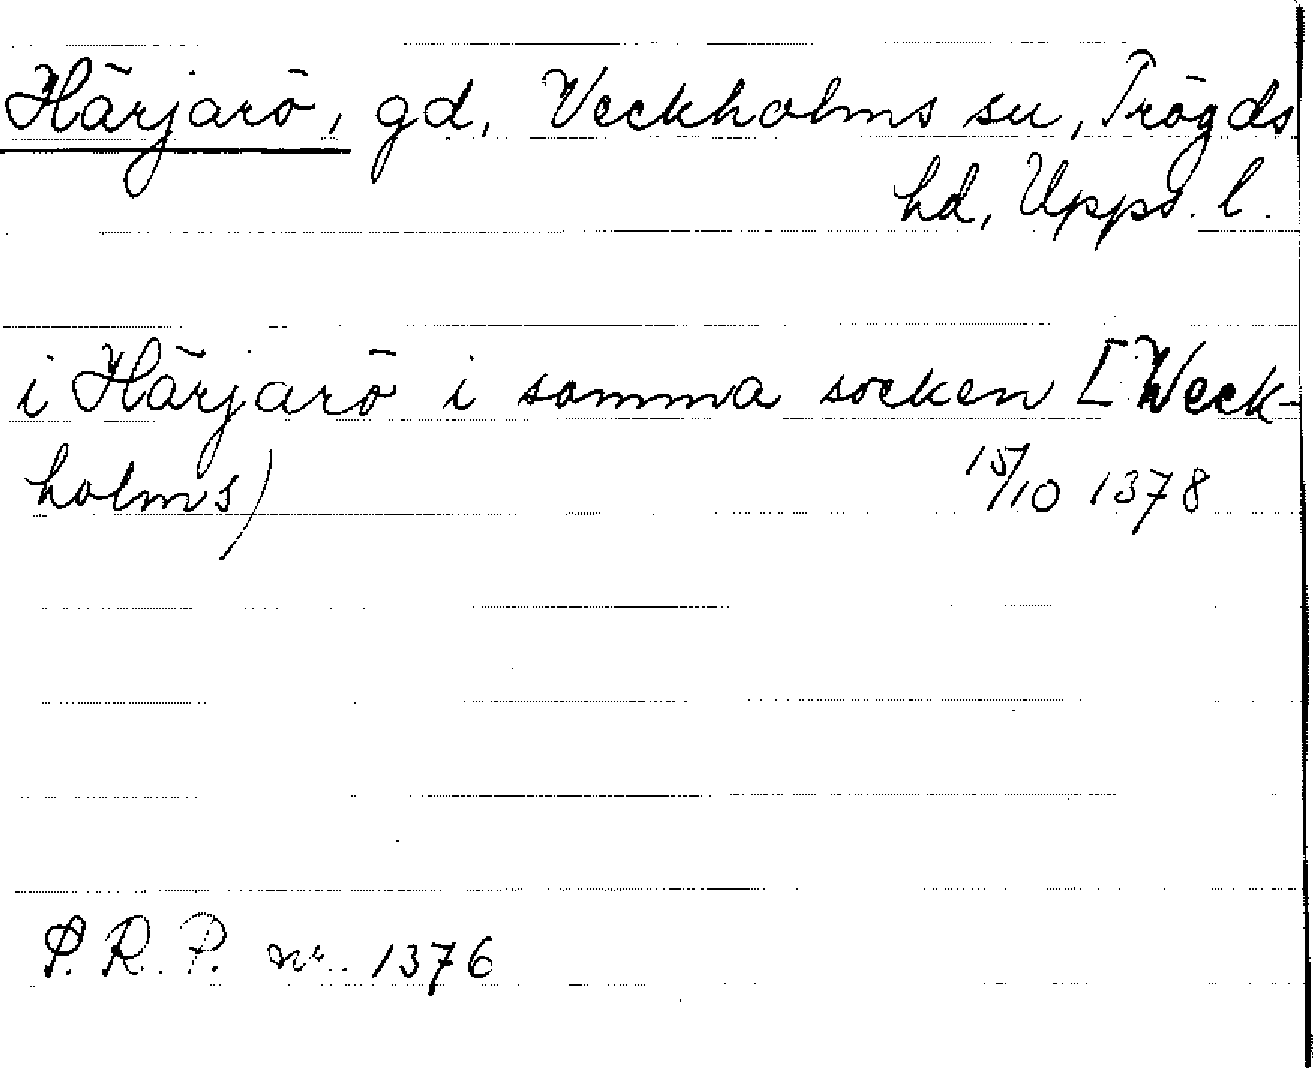 Härjarö, gd, Veckholms sn, Trögds
hd, Upps. l.
i Härjarö i somma socken [Weck-
holms) 15/10 1378
P. R. P. nr. 1376